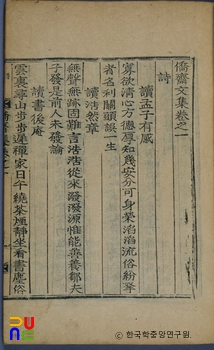 僑齋文集卷之一
詩
讀孟子有感
寡欲淸心方德厚知幾安分可身榮滔滔流俗紛爭
者名利關頭誤一生
讀沛然章
無聲無跡固難言浩浩從來潑潑源惟能善養鄒夫
子發是前人未發論
讀書後庵
雲裏尋山步步 禪家日午繞茶煙靜坐看書塵俗
한국학중앙연구원